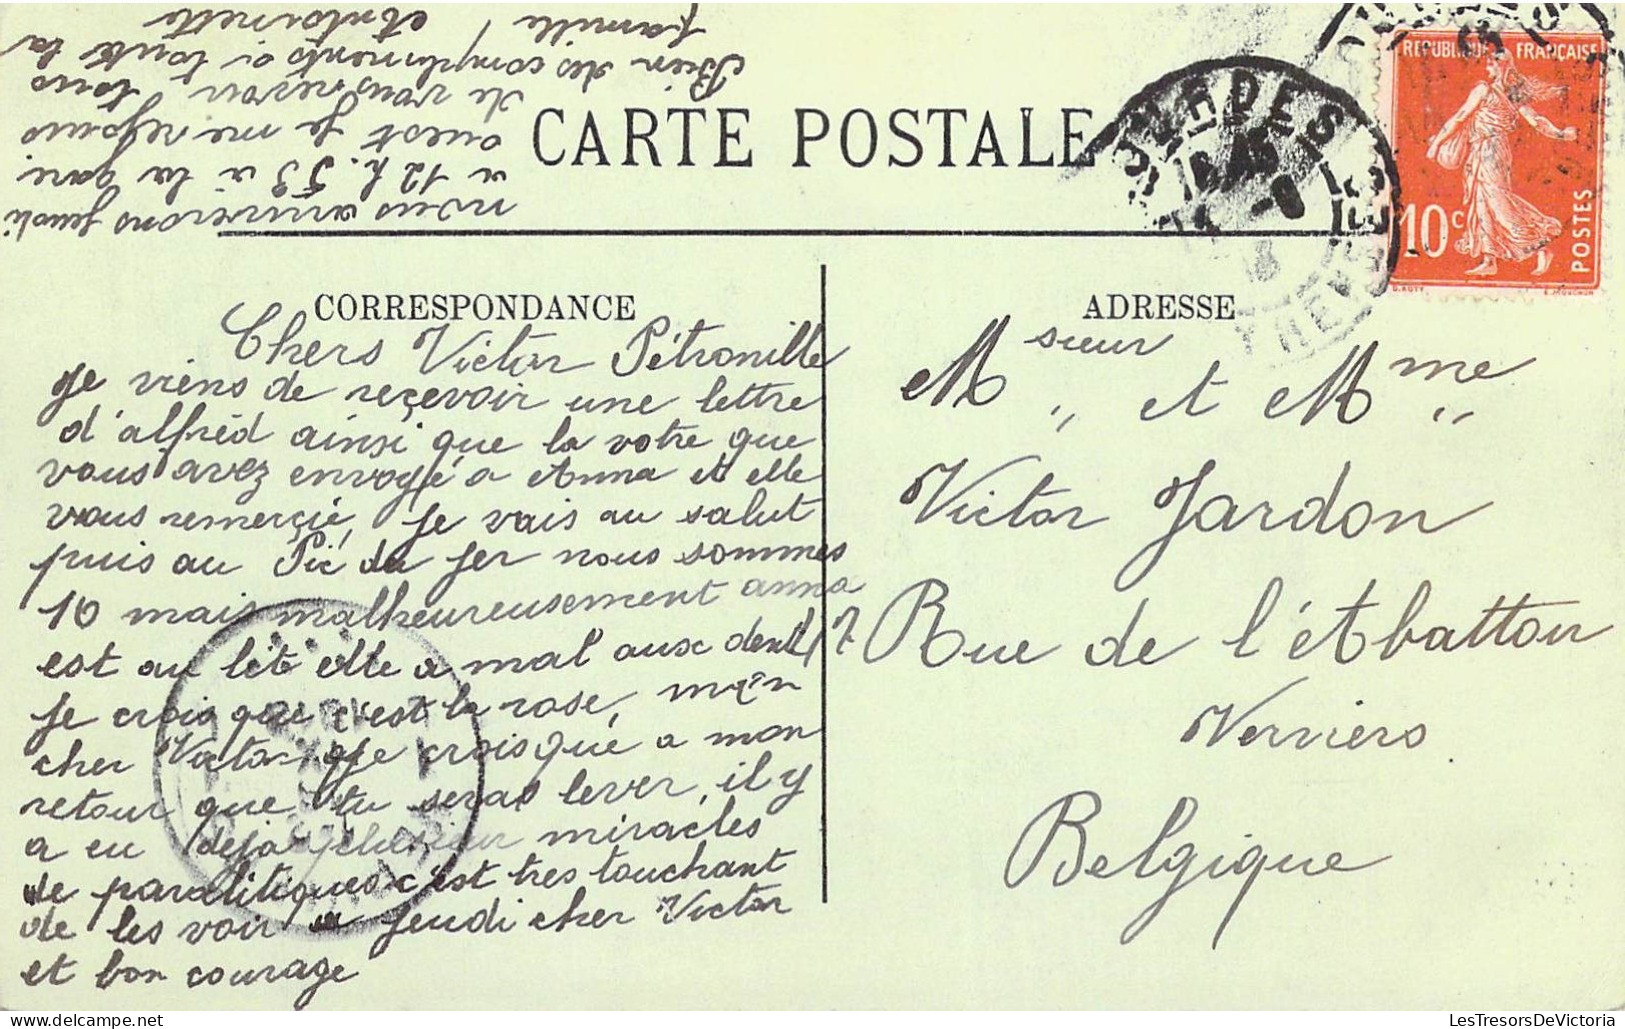 CARTE POSTALE
CORRESPONDANCE
Chers Victor Pétronille
Je viens de reçevoir une lettre
d'alfréd ainsi que la votre que
vous avez envoyé a Anna et elle
vous remerçie, Je vais au salut
puis au Pic du Jer nous sommes
10 mais malheureusement anna
est au lèt elle a mal aux dents
Je crois que c'est la rose, mon
cher Victor Je crois que a mon
retour que tu seras lever, il y
a eu deja miracles
de paralitiques c'est tres touchant
de les voir a Jeudi cher Victor
et bon courage
nous arriverons Jeudi
a 12 h. 53 a la gare
ouest Je me rejouis
de vous revoir tous
Bien des compliments a toute la
famille
ADRESSE
Msieur et Mme
Victor Jardon
Rue de l'Abattoir
Verviers
Belgique
REPUBLIQUE FRANÇAISE
10c
POSTES
O. ROTY
LOURDES
LesTresorsDeVictoria.com